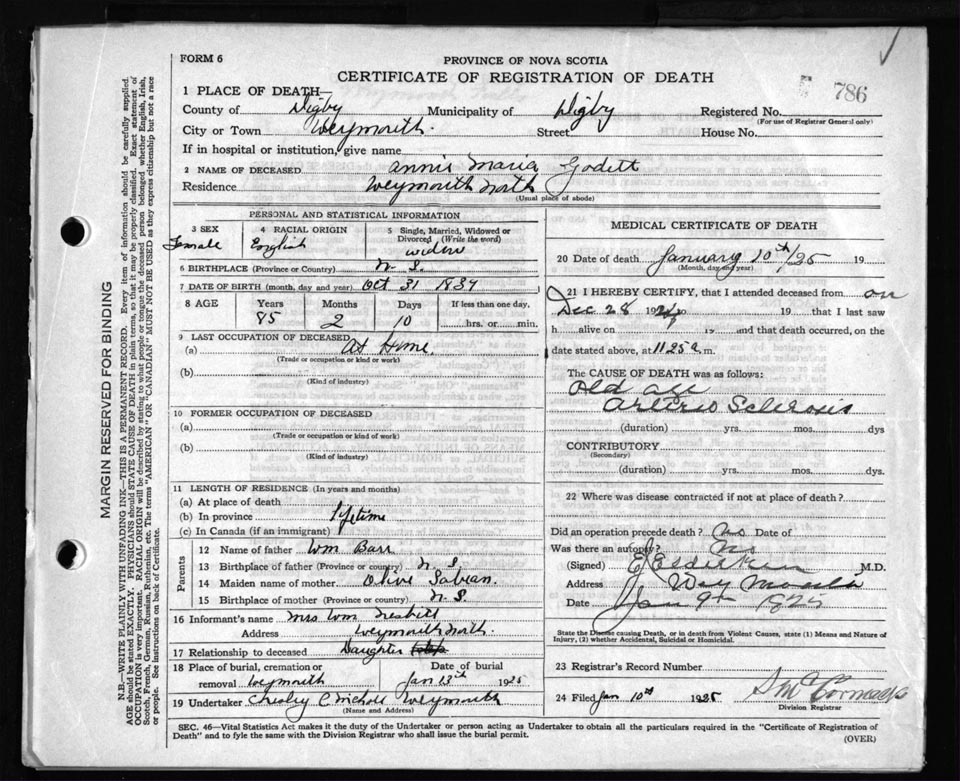 FORM 6
PROVINCE OF NOVA SCOTIA
CERTIFICATE OF REGISTRATION OF DEATH
786
1 PLACE OF DEATH—
County of Digby Municipality of Digby Registered No.
(For use of Registrar General only)
City or Town Weymouth. Street House No.
If in hospital or institution, give name
2 NAME OF DECEASED Annie Maria Godett
Residence Weymouth North
(Usual place of abode)
PERSONAL AND STATISTICAL INFORMATION
3 SEX 4 RACIAL ORIGIN 5 Single, Married, Widowed or
Divorced (Write the word)
Female English widow
6 BIRTHPLACE (Province or Country) N. S.
7 DATE OF BIRTH (month, day and year) Oct 31 1839
8 AGE Years Months Days If less than one day,
85 2 10 hrs. or min.
9 LAST OCCUPATION OF DECEASED
(a) At Home.
(Trade or occupation or kind or work)
(b)
(Kind of industry)
10 FORMER OCCUPATION OF DECEASED
(a)
(Trade or occupation or kind of work)
(b)
(Kind of industry)
11 LENGTH OF RESIDENCE (In years and months)
(a) At place of death
(b) In province lifetime
(c) In Canada (if an immigrant)
Parents
12 Name of father Wm Barr
13 Birthplace of father (Province or country) N. S.
14 Maiden name of mother Olive Sabean.
15 Birthplace of mother (Province or country) N. S.
16 Informant's name Mrs Wm Nesbitt
Address Weymouth North.
17 Relationship to deceased Daughter
18 Place of burial, cremation or removal Weymouth
Date of burial Jan 13th 1925
19 Undertaker C Nichols Weymouth
(Name and Address)
MEDICAL CERTIFICATE OF DEATH
20 Date of death January 10th/25 19
(Month, day and year)
21 I HEREBY CERTIFY, that I attended deceased from on
Dec 28 1924 to 19 that I last saw
h alive on 19 and that death occurred, on the
date stated above, at 11 25 a. m.
The CAUSE OF DEATH was as follows:
Old age
Arterio Sclerosis
(duration) yrs. mos. dys
CONTRIBUTORY
(Secondary)
(duration) yrs. mos. dys.
22 Where was disease contracted if not at place of death?
Did an operation precede death? No Date of
Was there an autopsy? No
(Signed) M.D.
Address Weymouth
Date Jan 9th 1925
State the Disease causing Death, or in death from Violent Causes, state (1) Means and Nature of
Injury, (2) whether Accidental, Suicidal or Homicidal.
23 Registrar's Record Number
24 Filed Jan 10th 1925
Division Registrar
SEC. 46—Vital Statistics Act makes it the duty of the Undertaker or person acting as Undertaker to obtain all the particulars required in the "Certificate of Registration of
Death" and to fyle the same with the Division Registrar who shall issue the burial permit.
(OVER)
MARGIN RESERVED FOR BINDING
N.B.—WRITE PLAINLY WITH UNFADING INK—THIS IS A PERMANENT RECORD. Every item of information should be carefully supplied.
AGE should be stated EXACTLY. PHYSICIANS should STATE CAUSE OF DEATH in plain terms, so that it may be properly classified. Exact statement of
OCCUPATION is very important. RACIAL ORIGIN will be described by stating to what people or tongue the deceased person belonged whether English, Irish,
Scotch, French, German, Russian, Ruthenian, etc. The terms "AMERICAN" OR "CANADIAN" MUST NOT BE USED as they express citizenship but not a race
or people. See instructions on back of Certificate.